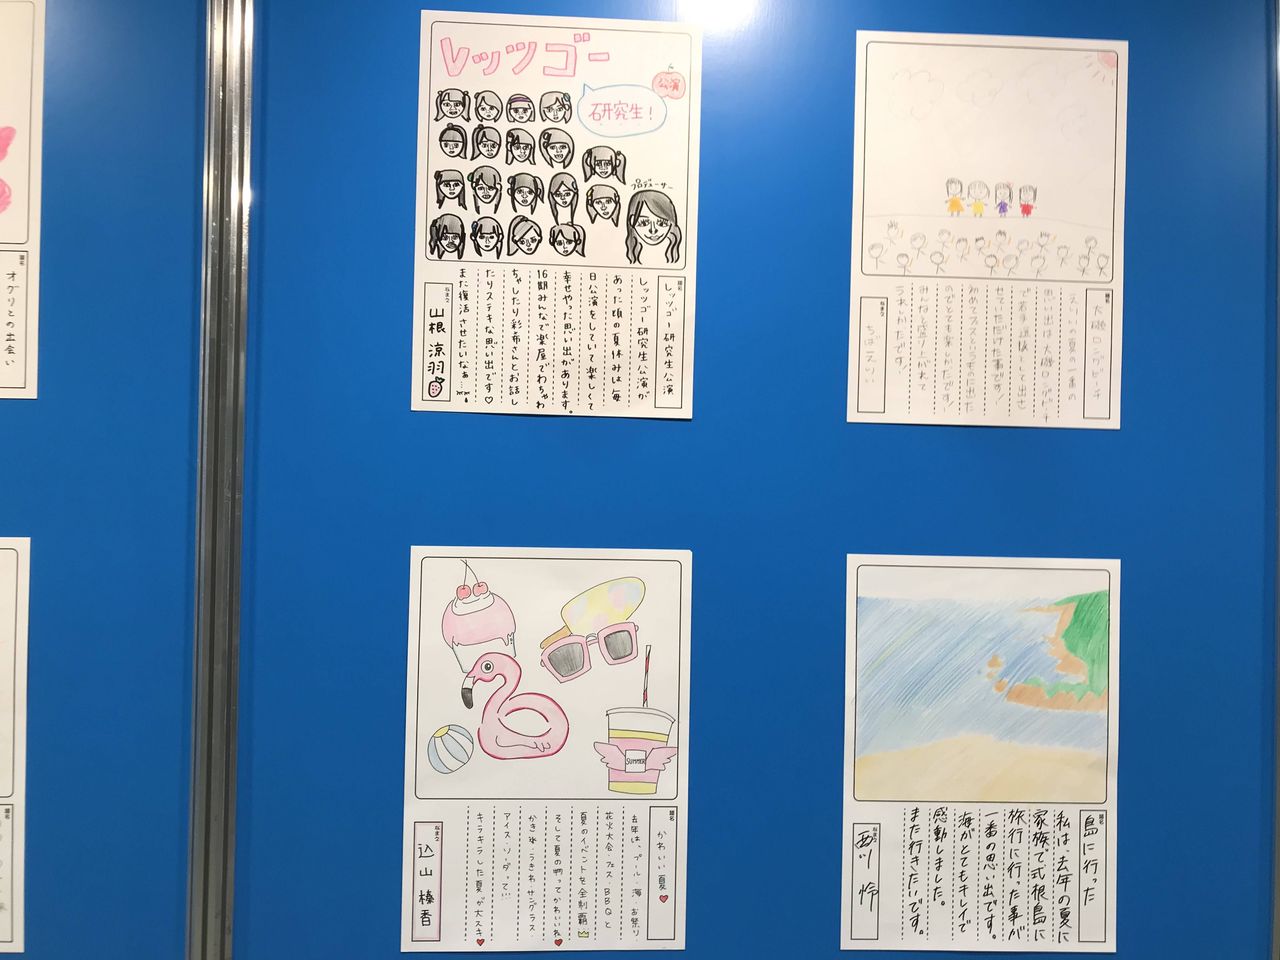 レッツゴー
研究生!
公演
プロデューサー
題名
レッツゴー研究生公演
レッツゴー研究生公演が
あった頃の夏休みは毎
日公演をしていて楽しくて
幸せやった思い出があります。
16期みんなで楽屋でわちゃわ
ちゃしたり彩希さんとお話し
たりステキな思い出です♡
また復活させたいなぁ…
なまえ
山根 涼羽
題名
大磯ロングビーチ
えりいの夏の一番の
思い出は大磯ロングビーチ
で若手選抜として出させ
せていただけた事です!
のでとても楽しかったです!
みんなと盛り上がれて
うれしかったです。
なまえ
ちばえりい
題名
かわいい夏♥
去年は、プール・海・お祭り・
花火大会・フェス・BBQと
夏のイベントを全制覇
そして夏の物ってかわいいね♥
かき氷・うきわ・サングラス・
アイス・ソーダって!!
キラキラした夏が大スキ♥
なまえ
込山 榛香
SUMMER
題名
島に行った
私は去年の夏に
家族で式根島に
旅行に行った事が
一番の思い出です。
海がとてもキレイで
感動しました。
また行きたいです。
なまえ
西川 怜
題名
オグリとの出会い
題名